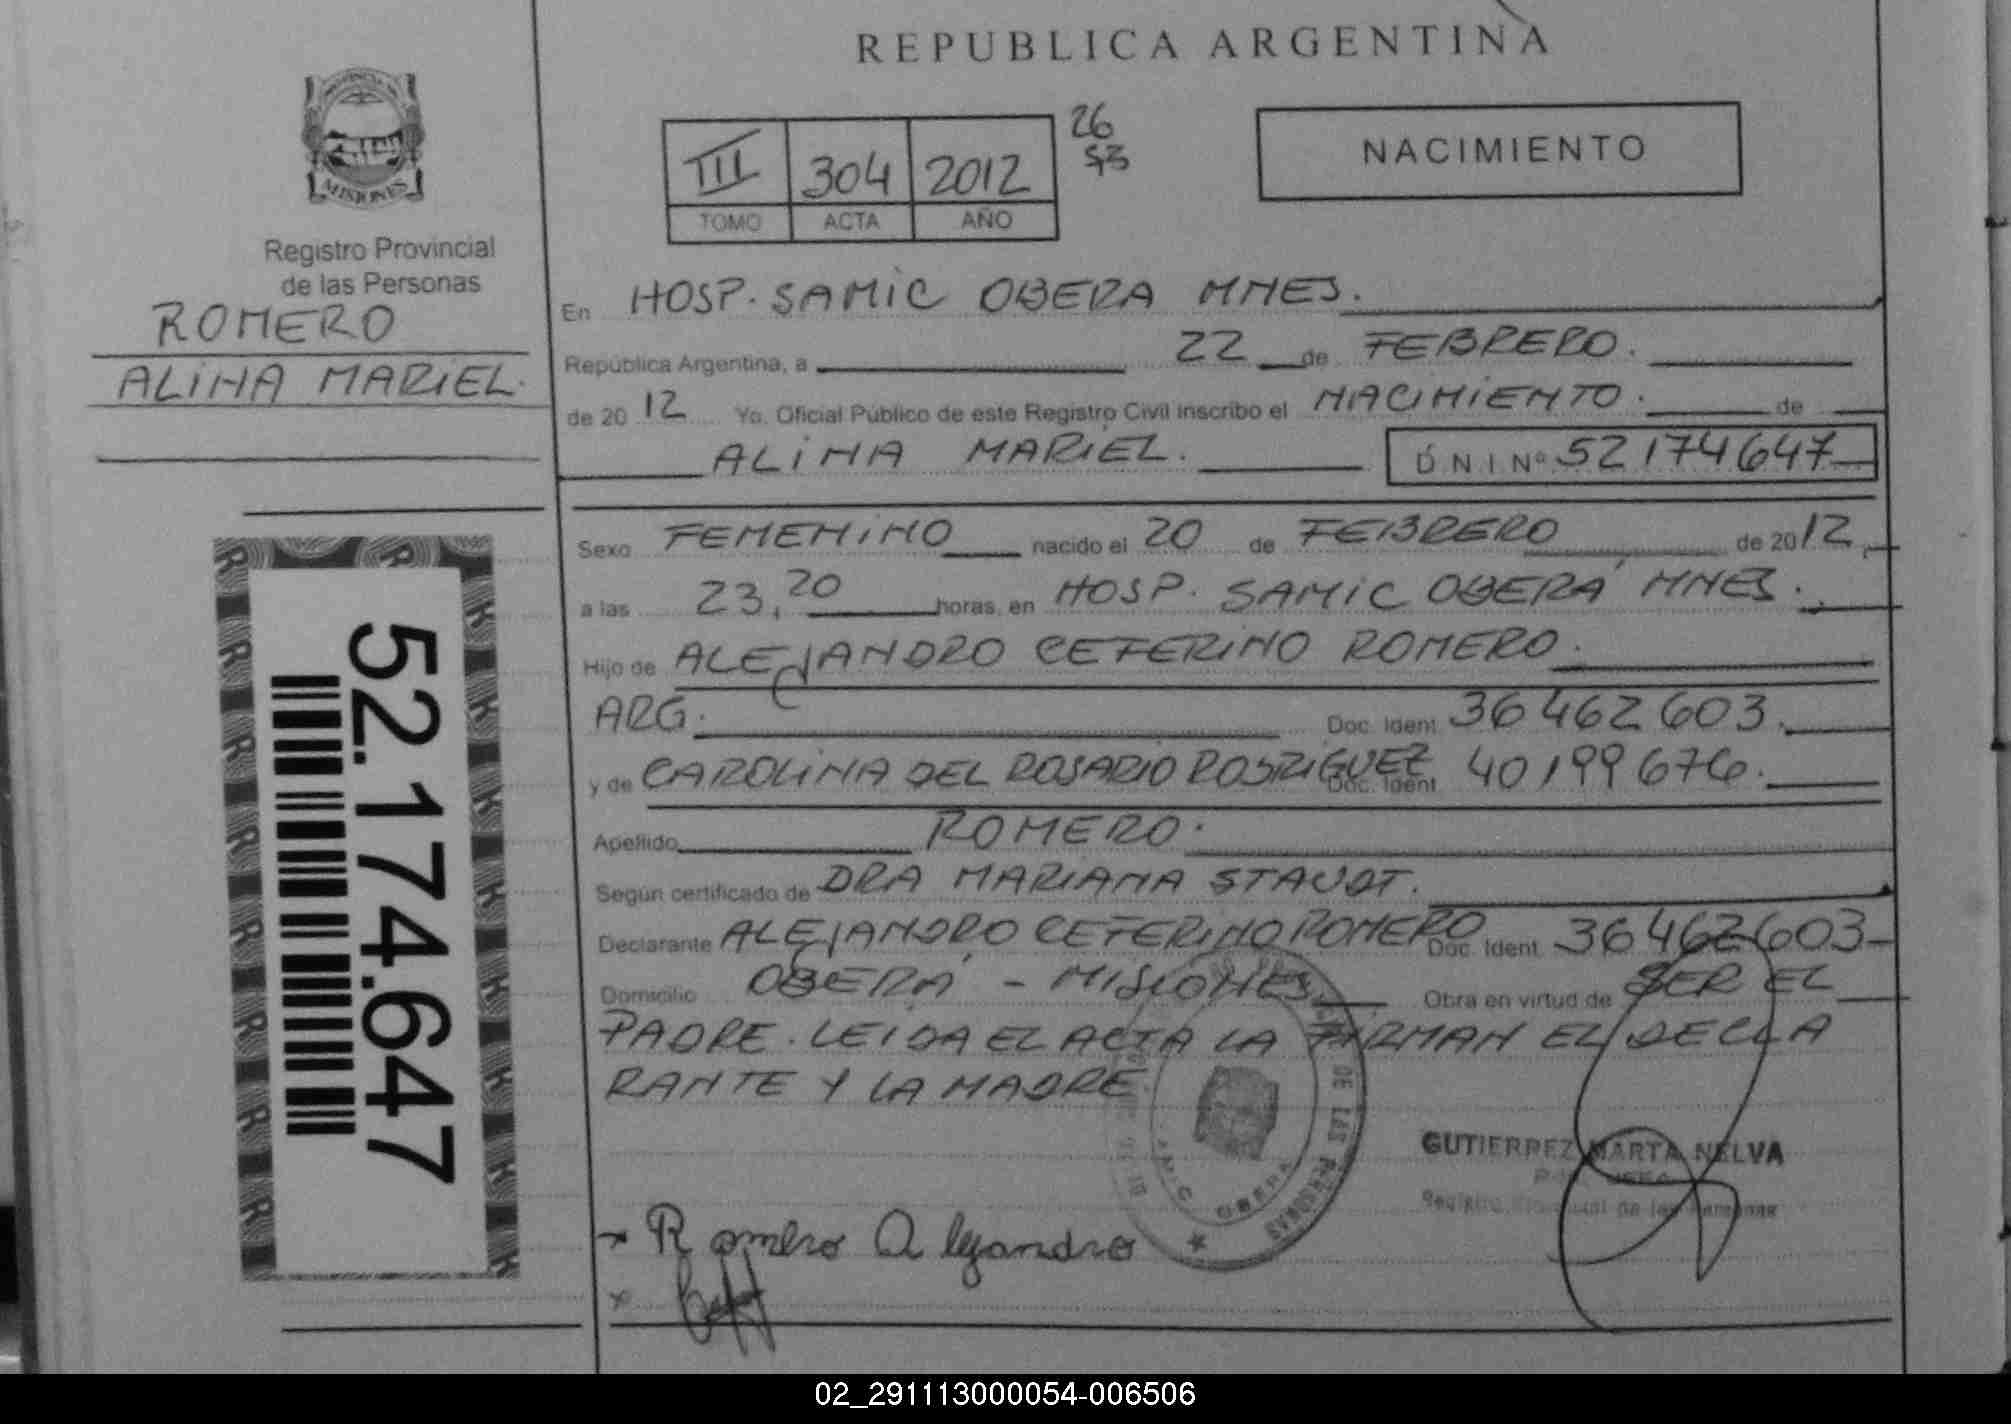 REPUBLICA ARGENTINA
MISIONES
Registro Provincial
de las Personas
ROMERO
ALINA MARIEL.
52.174.647
III 304 2012
TOMO ACTA AÑO
26
NACIMIENTO
En HOSP. SAMIC OBERA MNES.
República Argentina, a 22 de FEBRERO.
de 20 12 Yo, Oficial Público de este Registro Civil inscribo el NACIMIENTO. de
ALINA MARIEL. D.N.I Nº 52174647
Sexo FEMENINO nacido el 20 de FEBRERO de 2012
a las 23,20 horas, en HOSP. SAMIC OBERÁ MNES.
Hijo de ALEJANDRO CEFERINO ROMERO.
ARG. Doc. Ident. 36462603.
y de CAROLINA DEL ROSARIO RODRIGUEZ Doc. Ident. 40199676.
Apellido ROMERO.
Según certificado de DRA MARIANA STAUDT.
Declarante ALEJANDRO CEFERINO ROMERO Doc. Ident. 36462603
Domicilio OBERÁ - MISIONES Obra en virtud de SER EL
PADRE. LEIDA EL ACTA LA FIRMAN EL DECLA
RANTE Y LA MADRE
DE LAS PERSONAS
OBERA
GUTIERREZ MARTA NELVA
Registro Provincial de las Personas
Romero Alejandro
02_291113000054-006506